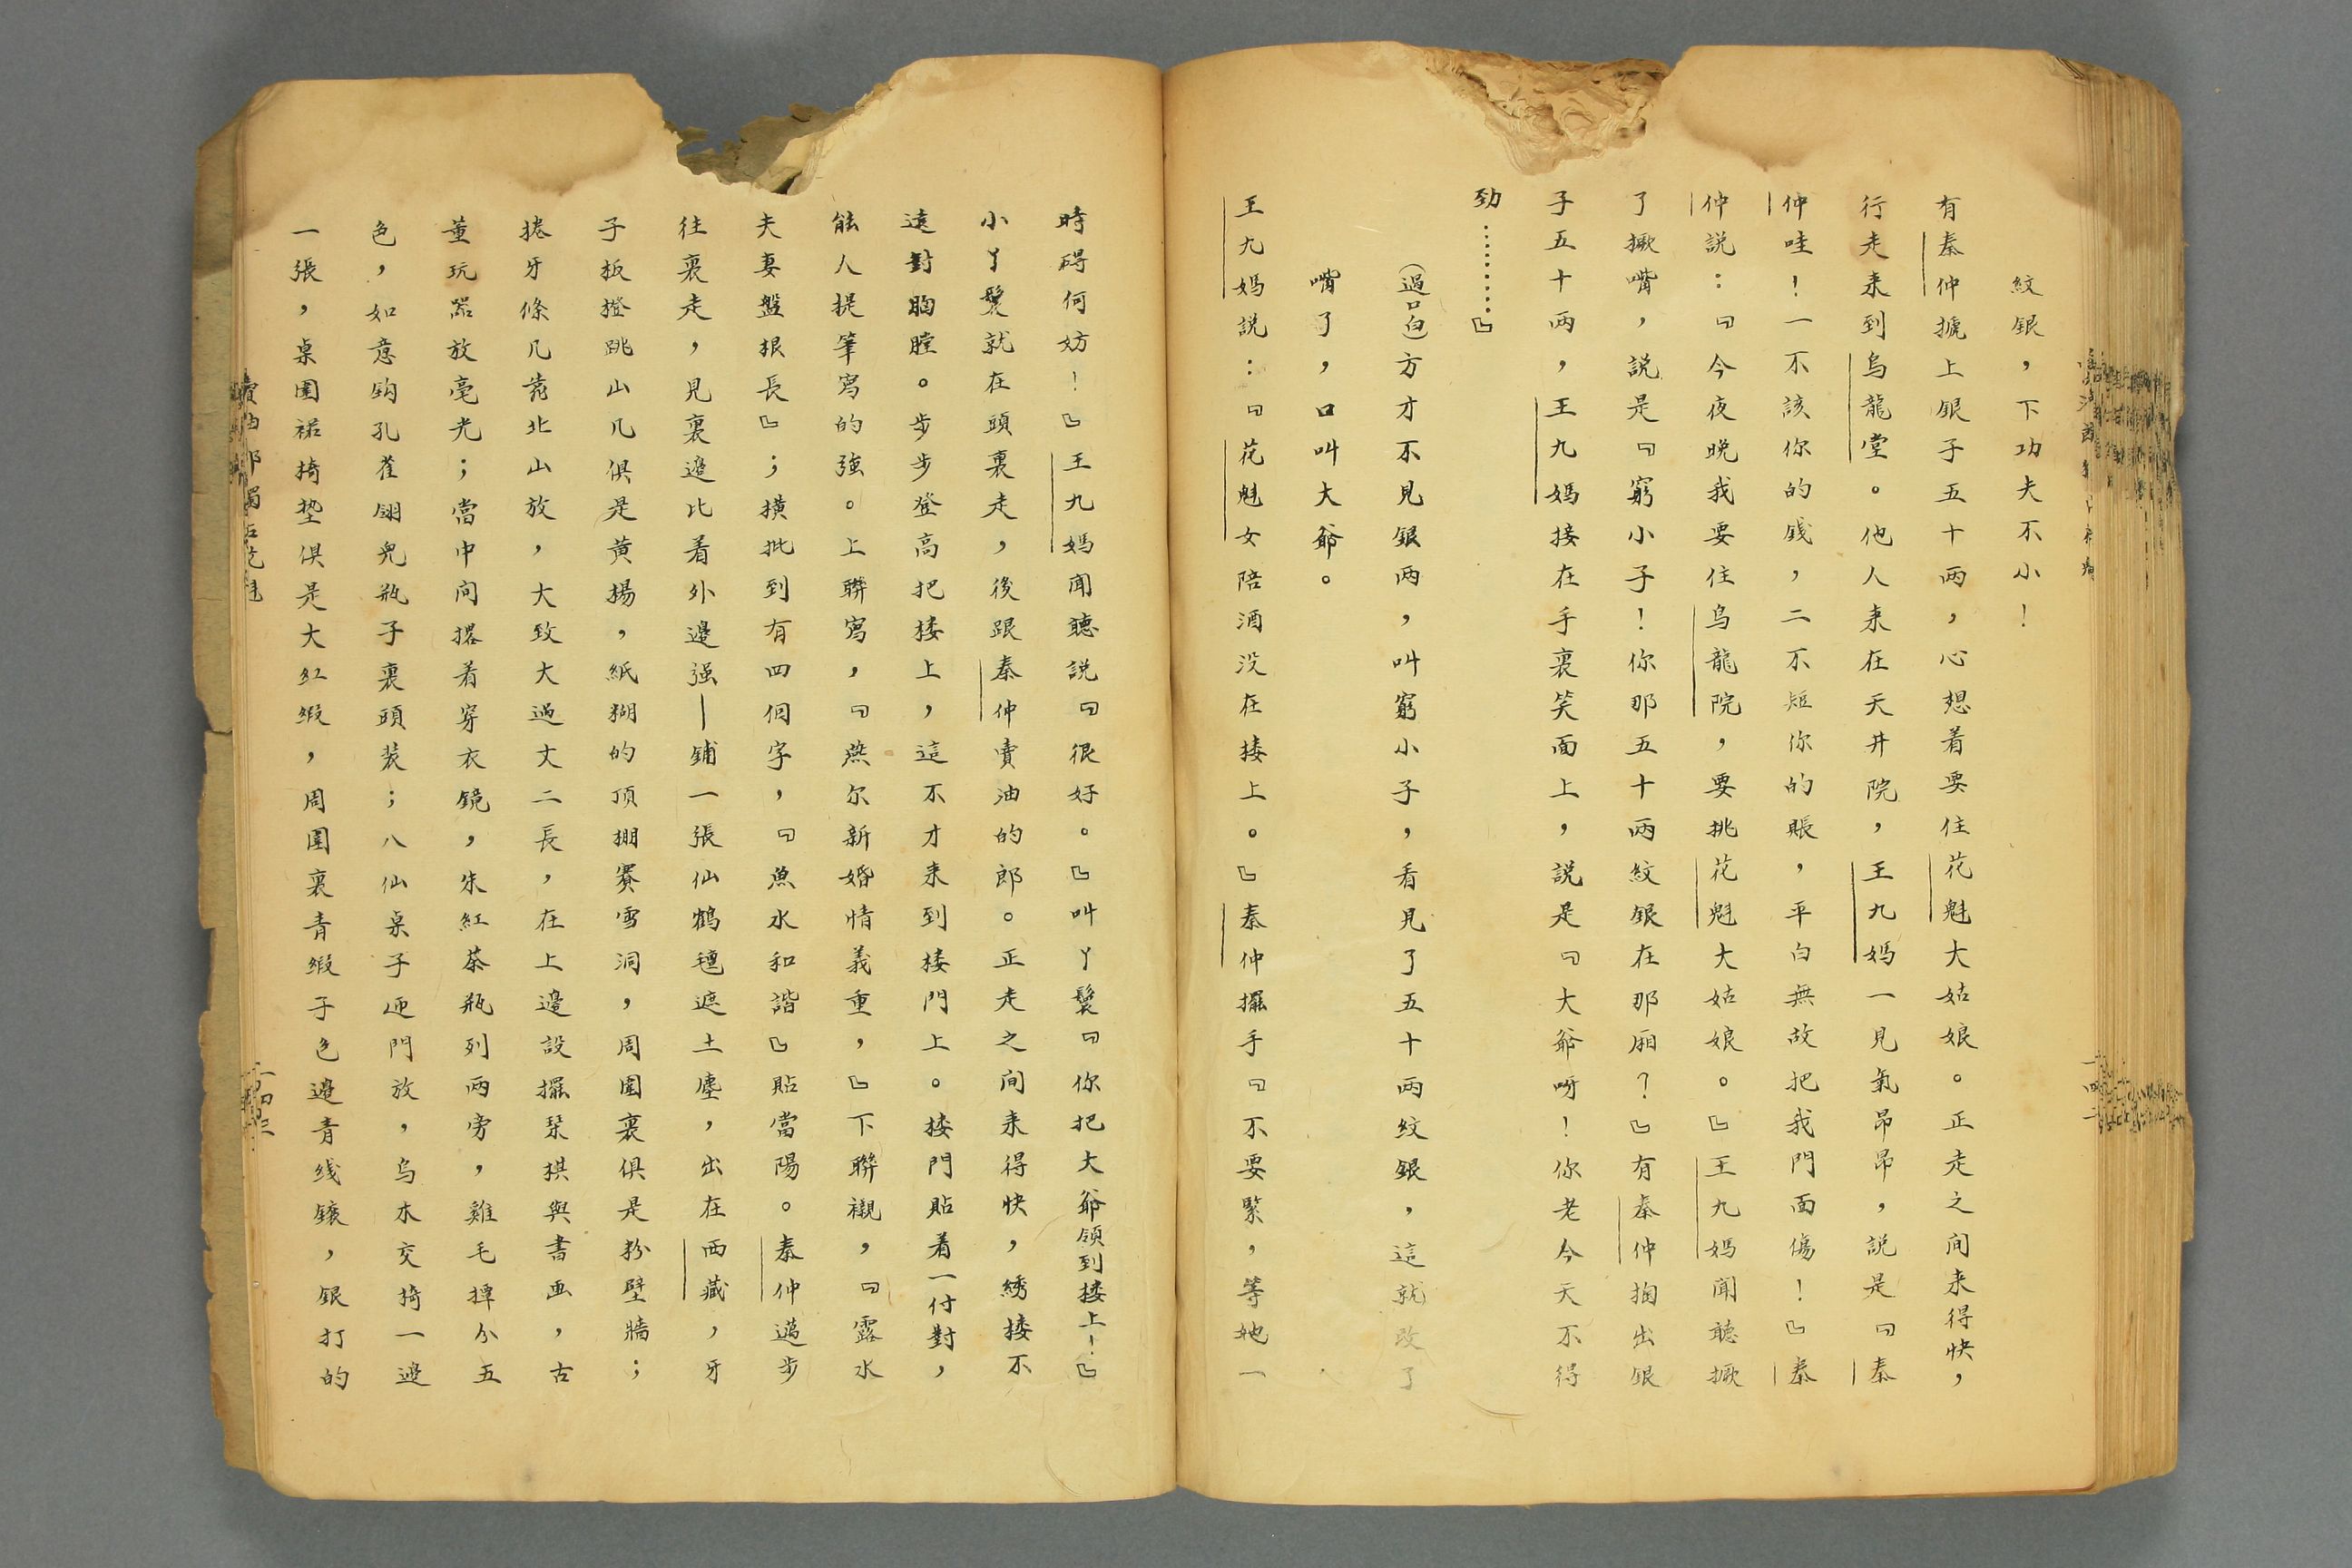 紋銀，下功夫不小！
有秦仲摅上銀子五十两，心想着要住花魁大姑娘。正走之间来得快，
行走来到烏龍堂。他人来在天井院，王九媽一見氣昂昂，説是『秦
仲哇！一不該你的錢，二不短你的賬，平白無故把我門面傷！』秦
仲説：『今夜晚我要住烏龍院，要挑花魁大姑娘。』王九媽聞聽撅
了撅嘴，説是『窮小子！你那五十两紋銀在那廂？』有秦仲掏出銀
子五十两，王九媽接在手裏笑面上，説是『大爺呀！你老今天不得
勁………』
（過口白）方才不見銀两，叫窮小子，看見了五十两紋銀，這就改了
嘴了，口叫大爺。
王九媽説：『花魁女陪酒没在搂上。』秦仲擺手『不要緊，等她一
時碍何妨！』王九媽聞聽説『很好。』叫丫鬟『你把大爺領到搂上！』
小丫鬟就在頭裏走，後跟秦仲賣油的郎。正走之间来得快，綉搂不
遠對胸膛。步步登高把搂上，這不才来到搂門上。搂門貼着一付對，
能人提筆寫的強。上聯寫，『燕尔新婚情義重，』下聯襯，『露水
夫妻盤根長』；横批到有四個字，『魚水和諧』貼當陽。秦仲邁步
往裏走，見裏邉比着外邉强—鋪一張仙鶴毯遮土塵，出在西藏，牙
子板橙跳山几俱是黄楊，紙糊的頂棚賽雪洞，周圍裏俱是粉壁牆；
捲牙條几靠北山放，大致大過丈二長，在上邉設擺琹棋與書画，古
董玩器放毫光；當中间撂着穿衣鏡，朱紅茶瓶列两旁，雞毛撣分五
色，如意鈎孔雀翎兠瓶子裏頭装；八仙桌子迎門放，烏木交掎一邉
一張，桌圍裙掎垫俱是大紅緞，周圍裏青緞子色邉青线鑲，銀打的
賣油郎獨占花魁
一四三